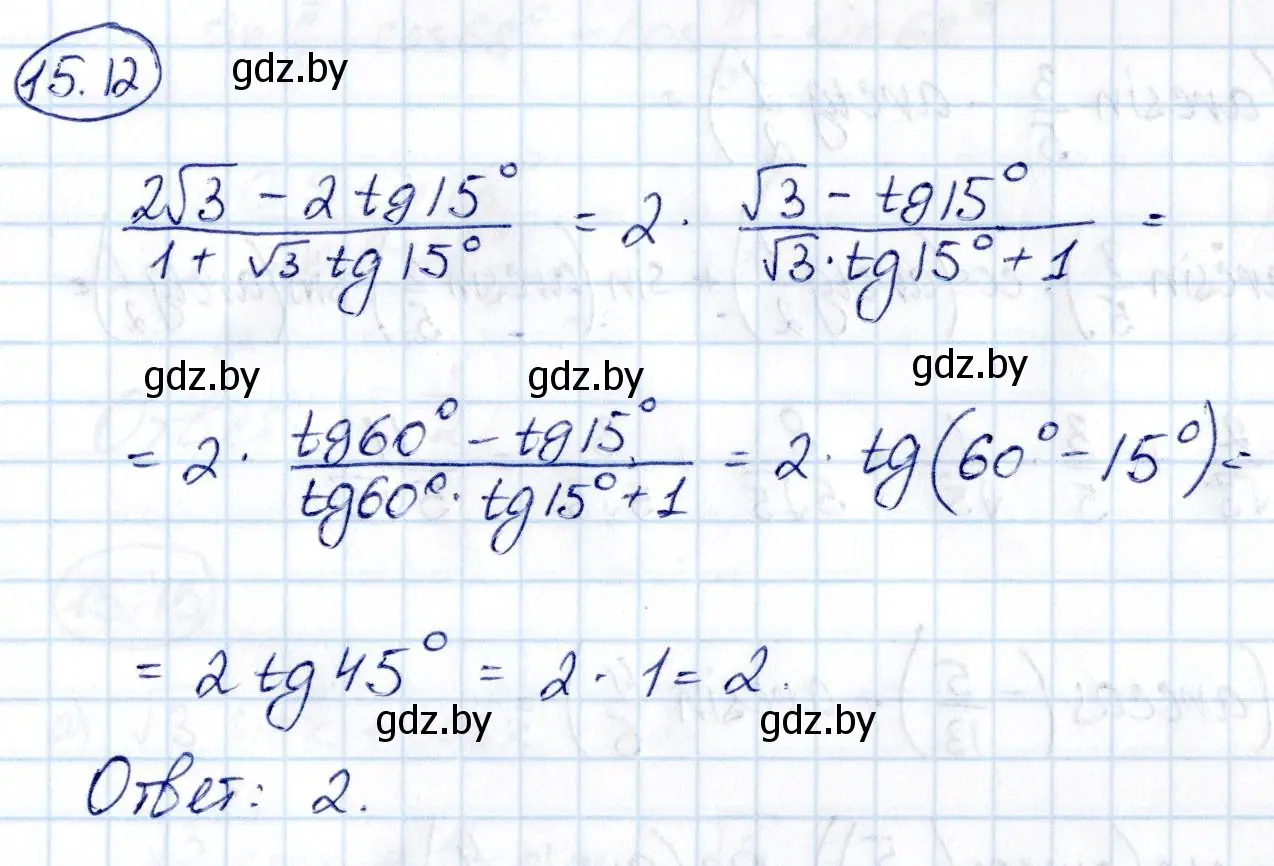 15.12 gdz.by
(2√3 - 2 tg 15°)/(1 + √3 tg 15°) = 2 · (√3 - tg 15°)/(√3 · tg 15° + 1) =
gdz.by gdz.by gdz.by
= 2 · (tg 60° - tg 15°)/(tg 60° · tg 15° + 1) = 2 · tg (60° - 15°) =
= 2 tg 45° = 2 · 1 = 2.
gdz.by gdz.by
Ответ: 2.